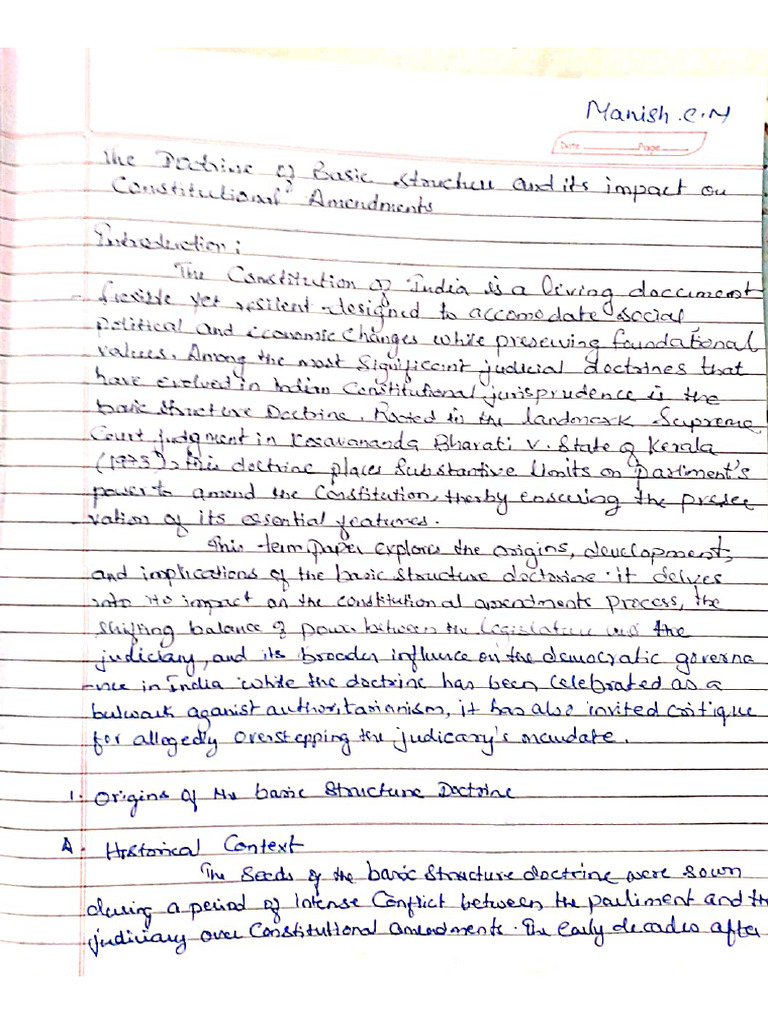 Manish.C.M
Date Page
The Doctrine of Basic Structure and its impact on
Constitutional Amendments
Introduction:
The Constitution of India is a living document
flexible yet resilient-designed to accomodate social
political and economic changes while preserving foundational
values. Among the most significant judicial doctrines that
have evolved in Indian Constitutional jurisprudence is the
basic structure Doctrine. Rooted in the landmark Supreme
Court judgment in Kesavananda Bharati v. State of Kerala
(1973), this doctrine places substantive limits on Parliment's
power to amend the Constitution, therby ensuring the preser
vation of its essential features.
This term paper explores the origins, development,
and implications of the basic structure doctorine. it delves
into its impact on the constitutional amendments process, the
shifting balance of power between the legislature and the
judiciary, and its broader influence on the democratic governa
nce in India while the doctrine has been celebrated as a
bulwark aganist authoritarianism, it has also invited critique
for allegedly overstepping the judicary's mandate.
1. Origins of the basic Structure Doctrine
A. Historical Context
The seeds of the basic structure doctrine were sown
during a period of intense conflict between the parliment and the
judiciary over Constitutional amendments. The early decades after